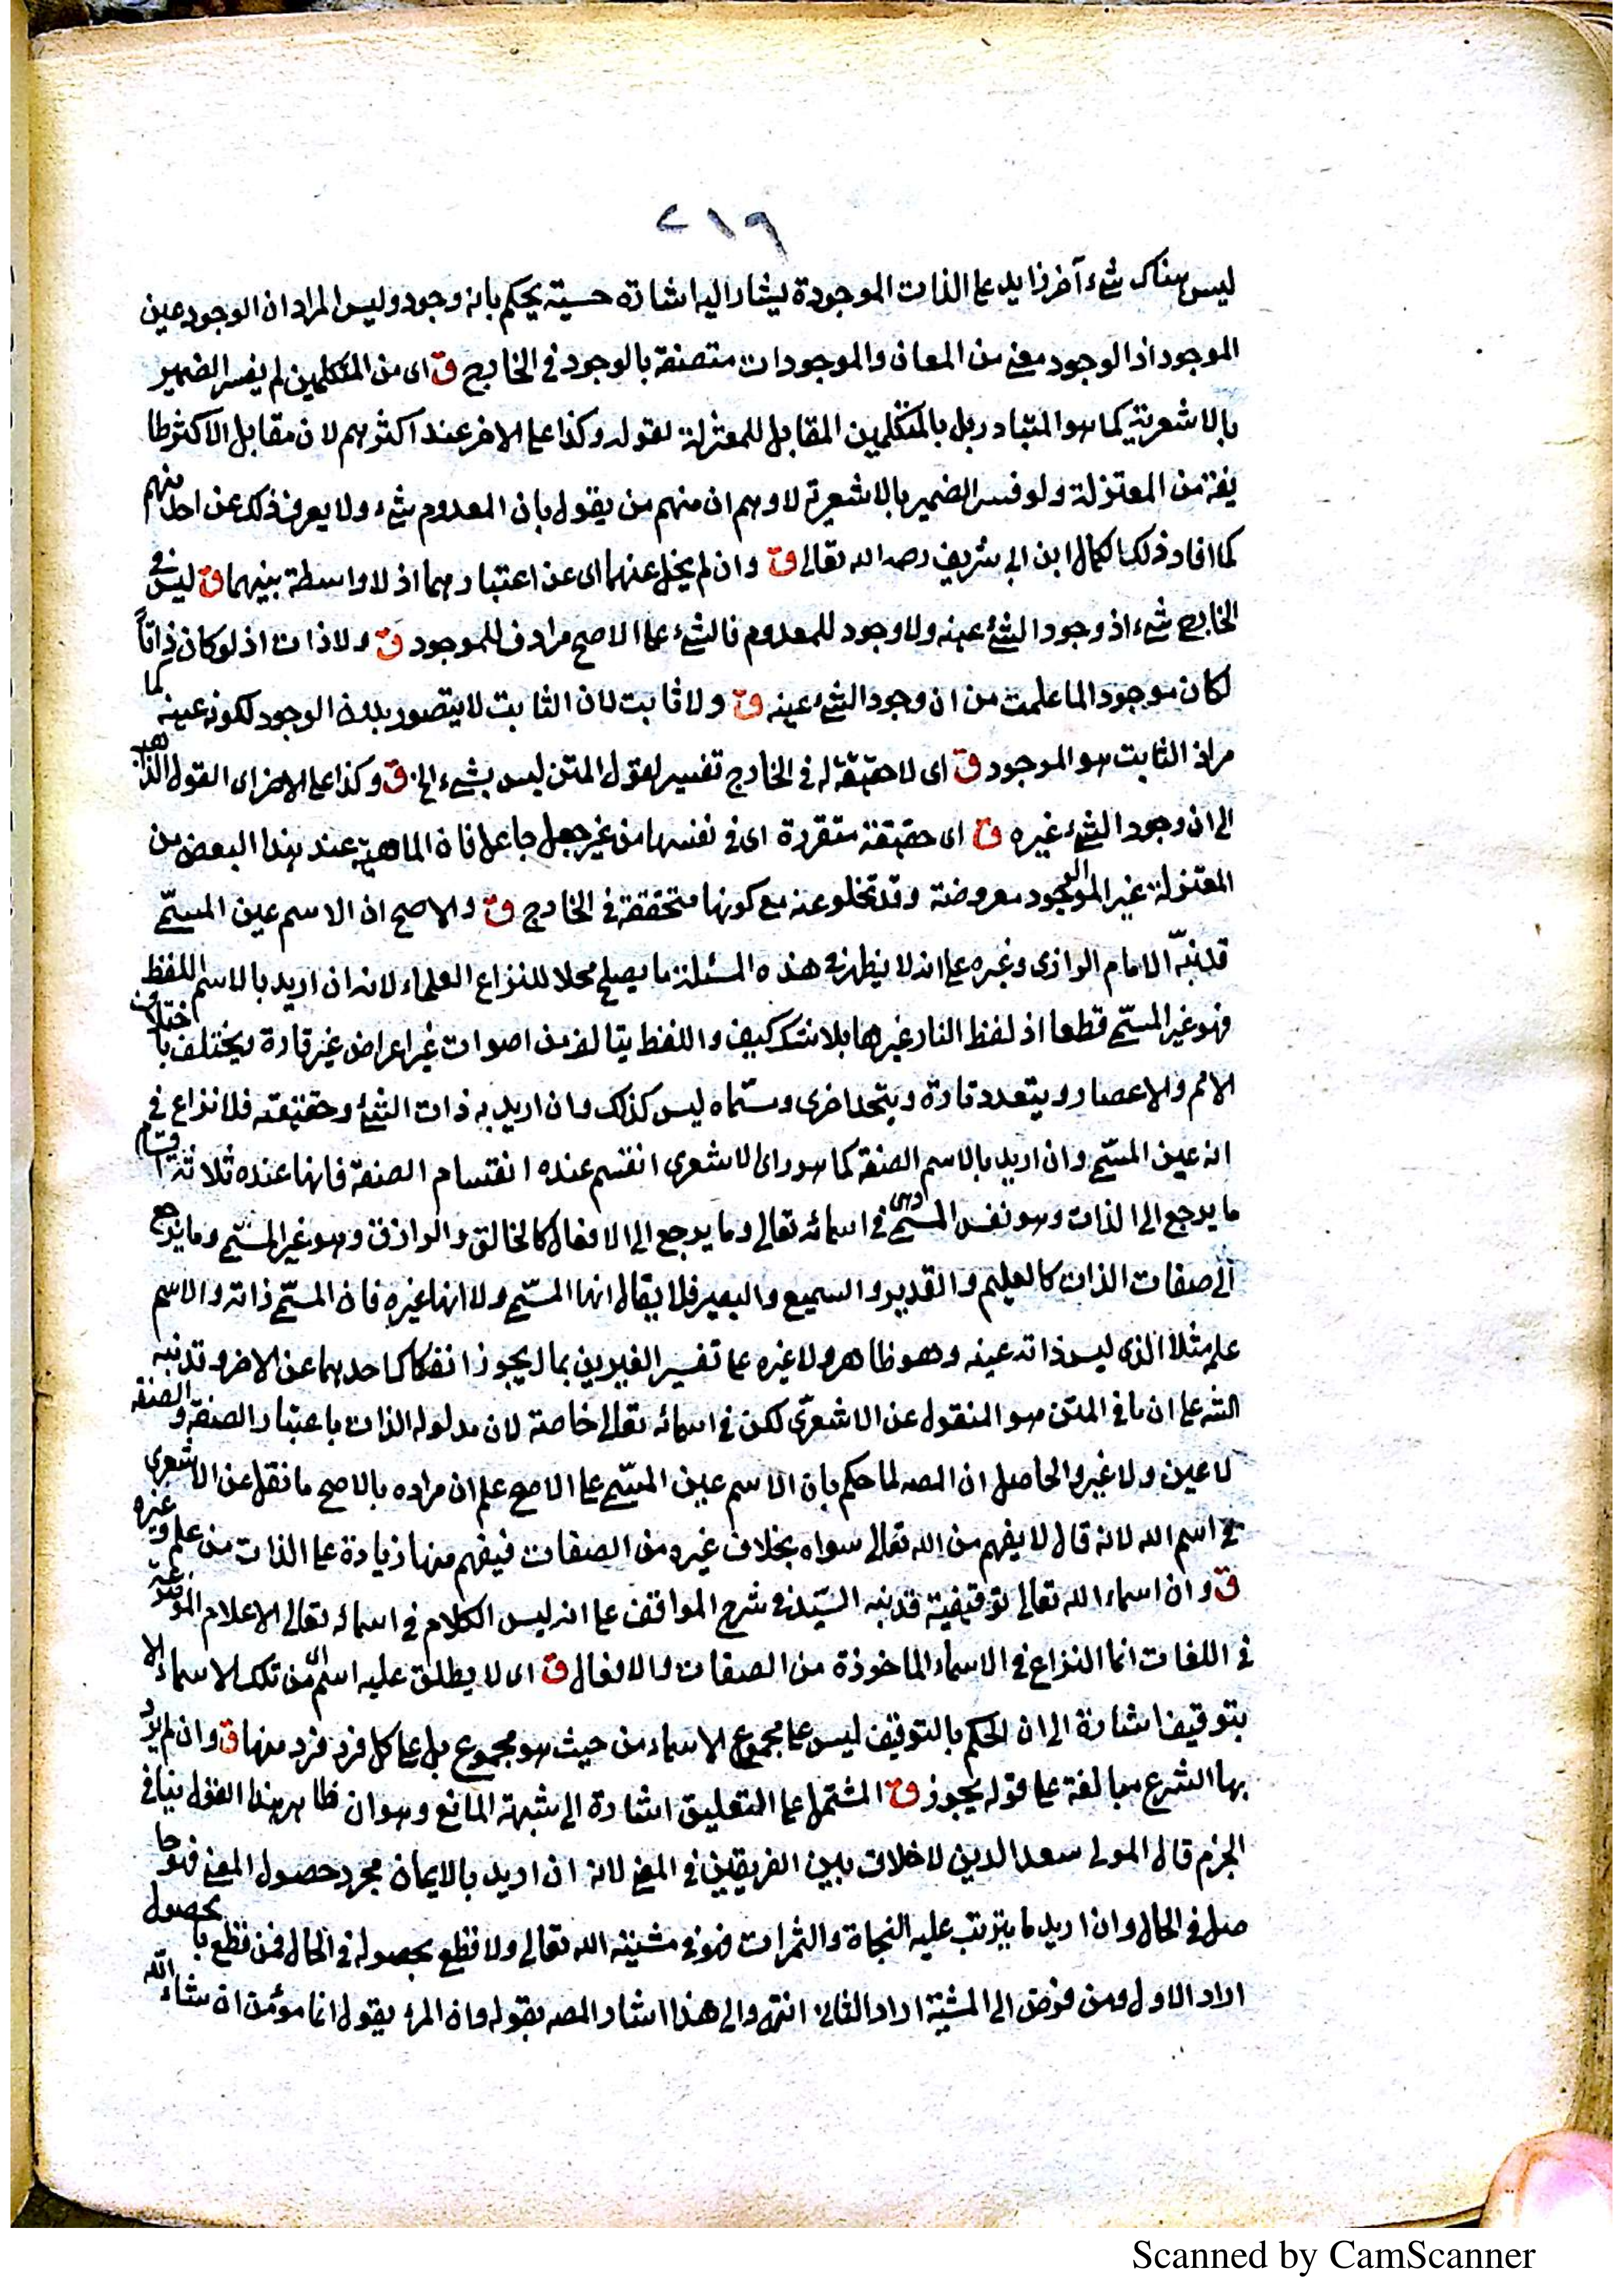 ٢١٩
ليس هناك شئ آخر زايد على الذات الموجودة يشار اليه اشارة حسية يحكم بانه وجود وليس المراد ان الوجود عين
الموجود اذ الوجود معنى من المعان والموجودات متصفة بالوجود في الخارج ق اى من المتكلمين لم يفسر الضمير
بالاشعرية كما هو المتبادر بل بالمتكلمين المقابل للمعتزلة لقوله وكذا على الاخر عند اكثرهم لان مقابل الاكثر طا
يفة من المعتزلة ولو فسر الضمير بالاشعرية لاوهم ان منهم من يقول بان المعدوم شئ ولا يعرف ذلك عن احد منهم
كما افاد ذلك الكمال ابن ابي شريف رحمه الله تعالى ق وان لم يخل عنهما اى عن اعتبارهما اذ لا واسطة بينهما ق ليس في
الخارج شئ اذ وجود الشئ عينه ولا وجود للمعدوم فالشئ على الاصح مرادف للموجود ق ولا ذات اذ لو كان ذاتاً
لكان موجودا لما علمت من ان وجود الشئ عينه ق ولا ثابت لان الثابت لا يتصور بدون الوجود لكونه عينه كما
مر اذ الثابت هو الموجود ق اى لا حقيقة له في الخارج تفسير لقول المتن ليس بشئ الخ ق وكذا على الاخر اى القول الذاهب
الى ان وجود الشئ غيره ق اى حقيقة متقررة اى في نفسها من غير جعل جاعل فان الماهية عند هذا البعض من
المعتزلة غير الوجود معروضة وقد تخلو عنه مع كونها متحققة في الخارج ق والاصح ان الاسم عين المسمّى
قد نبّه الامام الرازى وغيره على انه لا يظهر في هذه المسئلة ما يصلح محلا للنزاع العلماء لانه ان اريد بالاسم اللفظ
فهو غير المسمّى قطعا اذ لفظ النار غيرها بلا شك كيف واللفظ يتالف من اصوات غير اعراض غير قارة ويختلف باختلاف
الامم والاعصار ويتعدد تارة ويتحد اخرى ومسمّاه ليس كذلك وان اريد به ذات الشئ وحقيقته فلا نزاع في
انه عين المسمّى وان اريد بالاسم الصفة كما هو راى الاشعرى انقسم عنده انقسام الصفة فانها عنده ثلاثة اقسام
ما يرجع الى الذات وهو نفس المسمّى في اسمائه تعالى وما يرجع الى الافعال كالخالق والرازق وهو غير المسمّى وما يرجع
الى صفات الذات كالعليم والقدير والسميع والبصير فلا يقال انها المسمّى ولا انها غيره فان المسمّى ذاته والاسم
علم مثلا الذى ليس ذاته عينه وهو ظاهر ولا غيره على تفسير الغيرين بما يجوز انفكاك احدهما عن الاخر وقد نبه
الشه على ان ما في المتن هو المنقول عن الاشعرىّ لكن في اسمائه تعالى خاصة لان مدلوله الذات باعتبار الصفة والصفة
لا عين ولا غير والحاصل ان المصه لما حكم بان الاسم عين المسمّى على الاصح علم ان مراده بالاصح ما نقل عن الاشعرى
في اسم الله لانه قال لا يفهم من الله تعالى سواه بخلاف غيره من الصفات فيفهم منها زيادة على الذات من علم وغيره
ق وان اسماء الله تعالى توقيفية قد نبه السيّد في شرح المواقف على انه ليس الكلام في اسمائه تعالى الاعلام الموضوعة
في اللغات انما النزاع في الاسماء الماخوذة من الصفات والافعال ق اى لا يطلق عليه اسم من تلك الاسماء الا
بتوقيف اشارة الى ان الحكم بالتوقيف ليس على مجموع الاسماء من حيث هو مجموع بل على كل فرد فرد منها ق وان لم يرد
بها الشرع مبالغة على قوله يجوز ق المشتمل على التعليق اشارة الى شبهة المانع وهو ان ظاهر هذا القول ينافي
الجزم قال المولى سعد الدين لا خلاف بين الفريقين في المعنى لانه ان اريد بالايمان مجرد حصول المعنى فهو حا
صل في الحال وان اريد ما يترتب عليه النجاة والثمرات فهو في مشيئة الله تعالى ولا قطع بحصوله في الحال فمن قطع بالحصول
اراد الاول ومن فوض الى المشية اراد الثانى انتهى والى هذا اشار المصه بقوله وان المرء يقول انا مؤمن ان شاء الله
Scanned by CamScanner